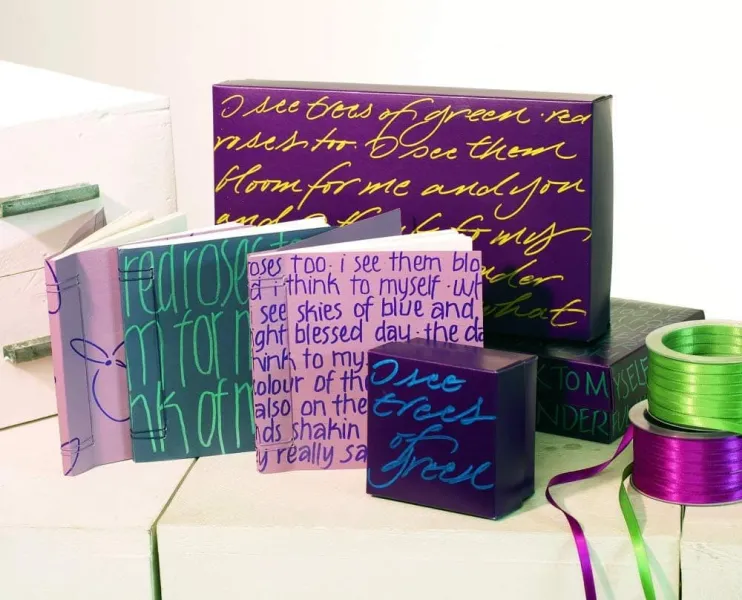 I see trees of green. red
roses too. I see them
bloom for me and you
and to my
what
red roses
m for m
nk of m
oses too. i see them bloo
d i think to myself. wh
see skies of blue and
ght blessed day. the da
hink to my
olour of the
also on the
ds shakin
y really sa
I see
trees
of
green
K TO MYSELF
NDER